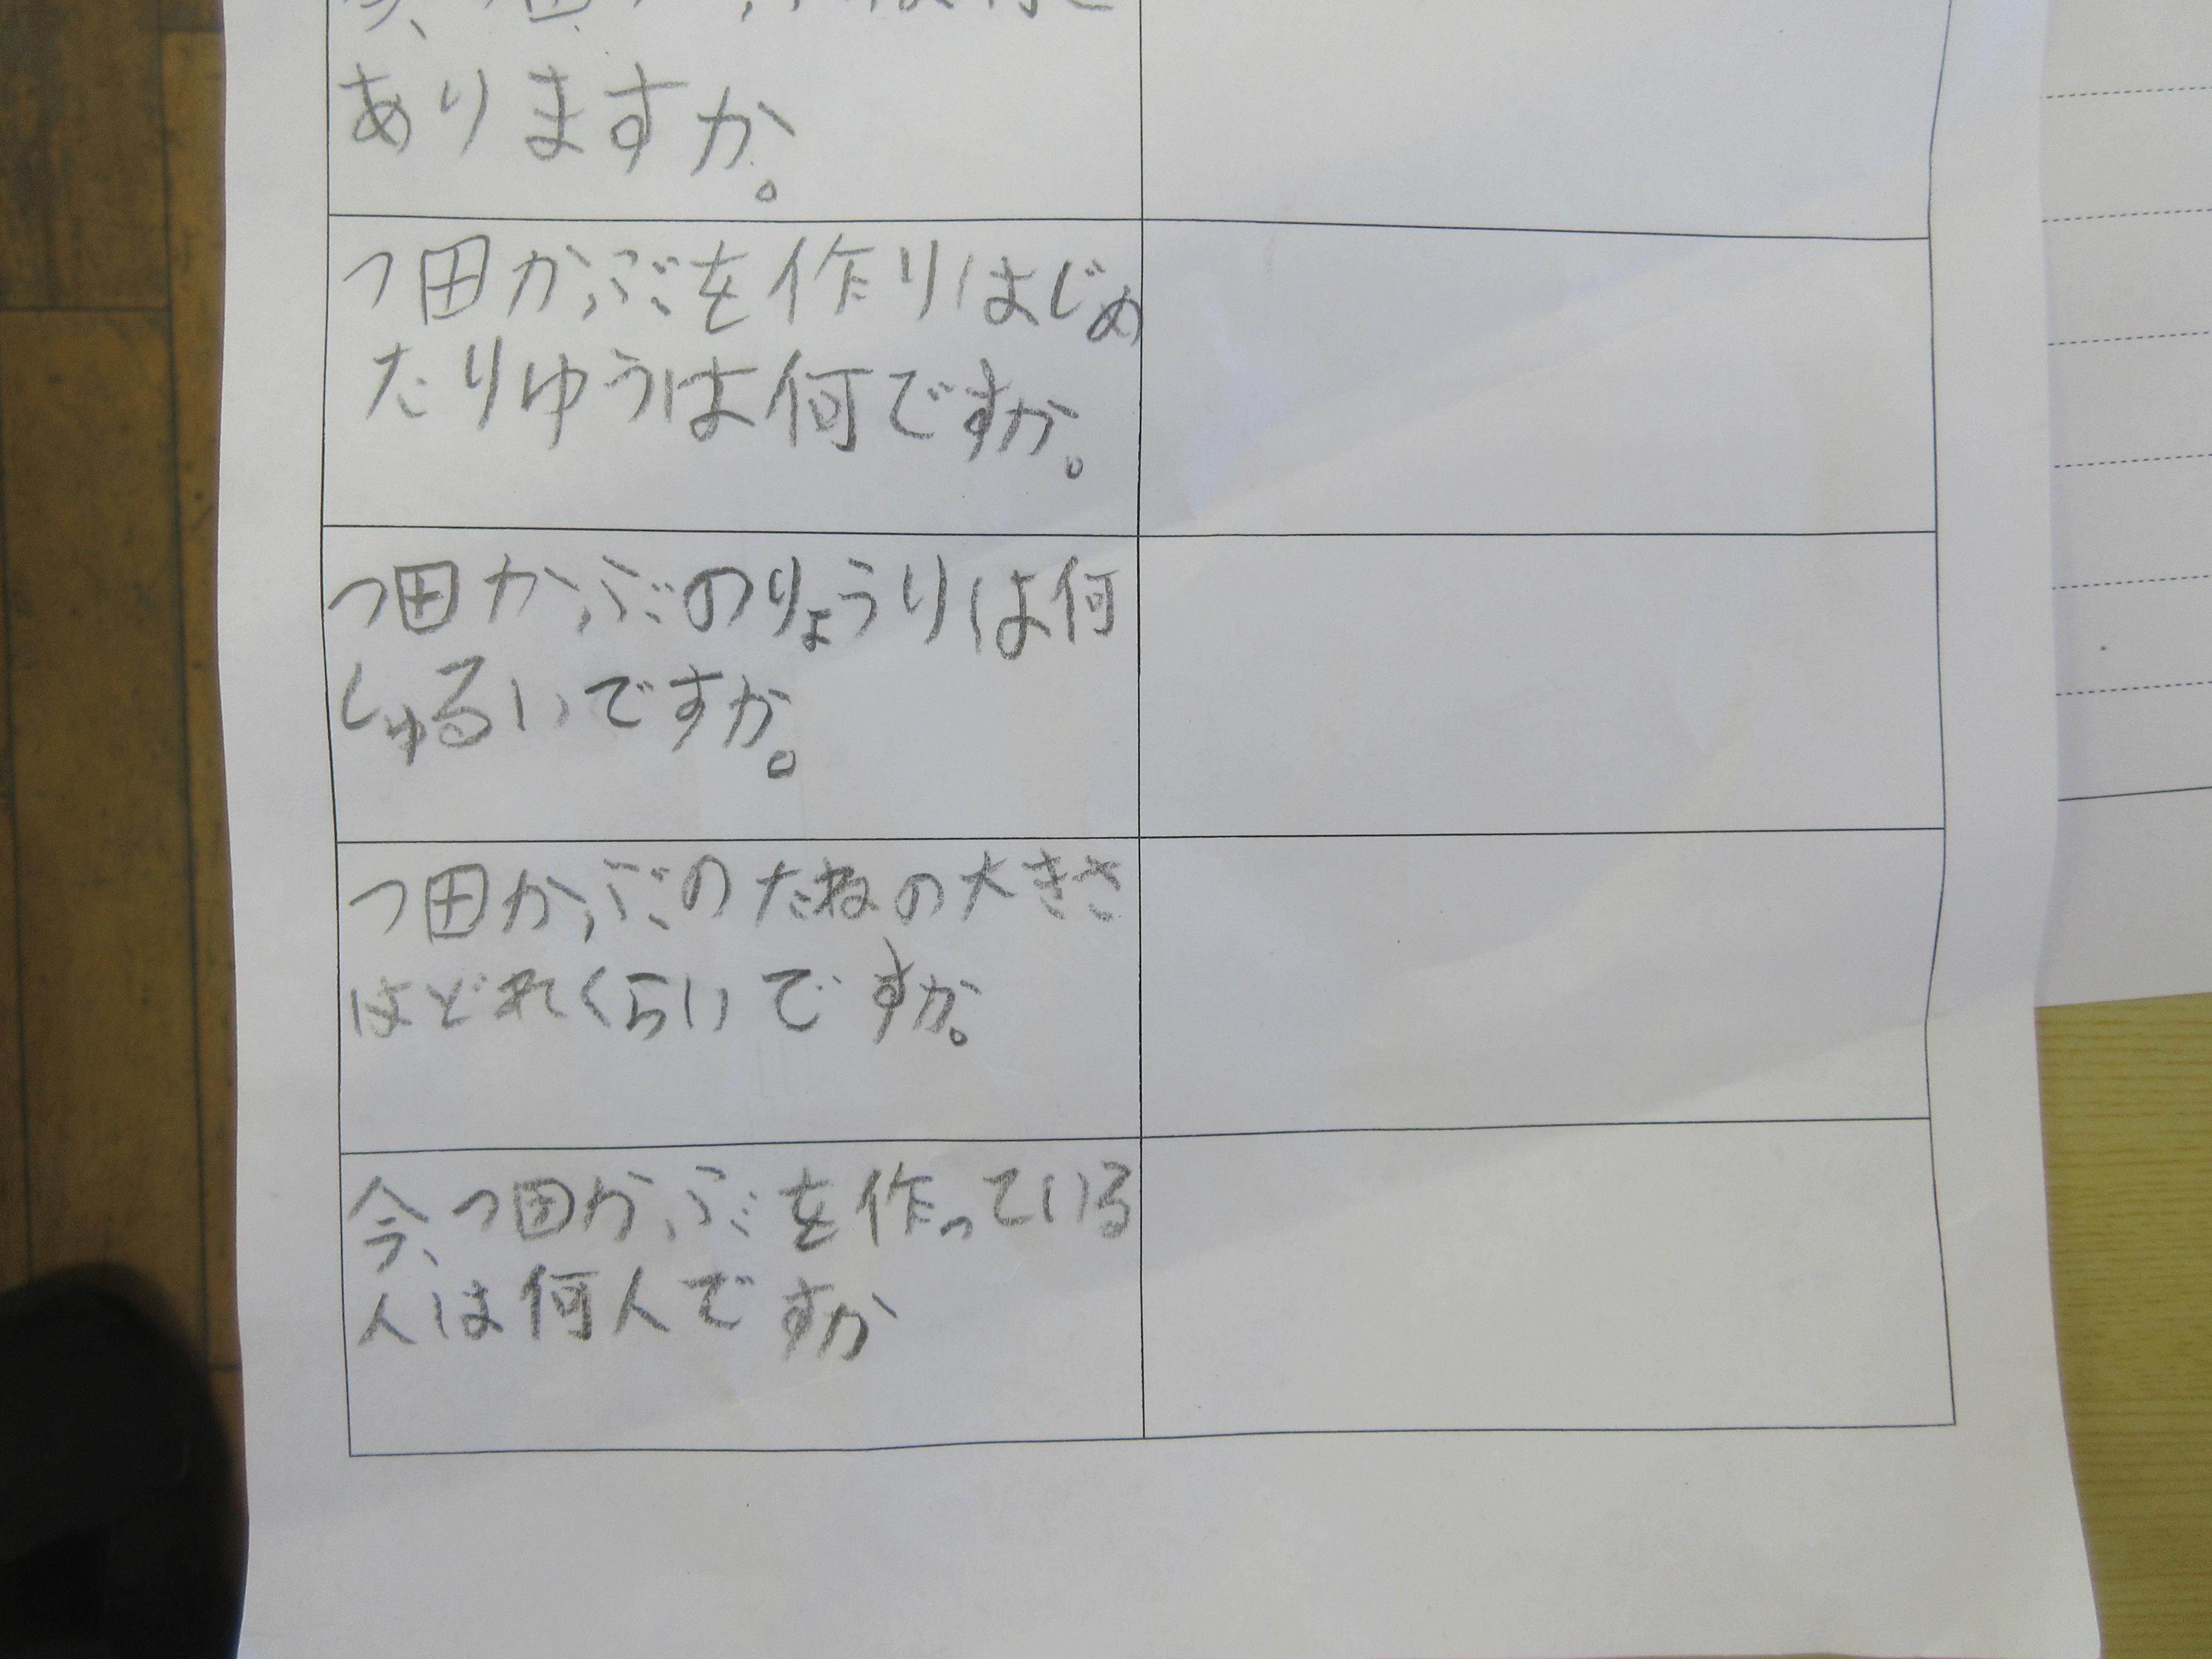 ありますか。
つ田かぶを作りはじめ
たりゆうは何ですか。
つ田かぶのりょうりは何
しゅるいですか。
つ田かぶのたねの大きさ
はどれくらいですか。
今、つ田かぶを作っている
人は何人ですか